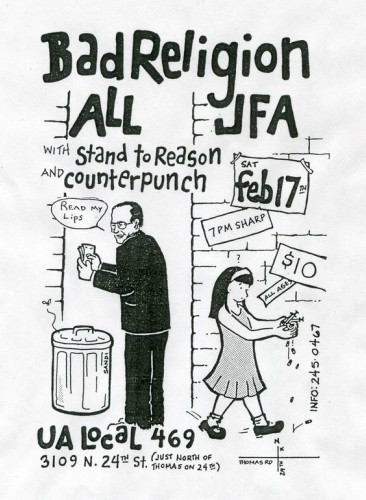 Bad Religion
ALL JFA
WITH Stand to Reason
AND counterpunch
SAT
feb 17TH
READ MY
LIPS
7PM SHARP
?
$10
ALL AGES
INFO: 245-0467
SANDI
UA LOCAL 469
3109 N. 24TH ST. (JUST NORTH OF
THOMAS ON 24TH)
N
THOMAS RD
24TH ST